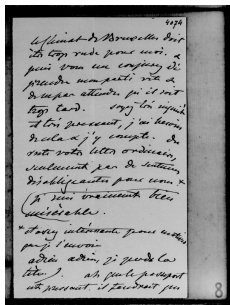 4074
le climat de Bruxelles doit
être trop rude pour moi. &
puis vous me conjurez de
prendre mon parti vite &
de ne pas attendre qu'il soit
trop tard. soyez
et très pressant, j'ai besoin
de cela & j'y compte. du
reste votre lettre ordinaire,
seulement pas de
désobligeantes pour nous
je suis vraiment bien
misérable.
pour
que je l'envoie
adieu adieu, je perds la
tête. ah que le passeport
est pressant. il faudrait que
8